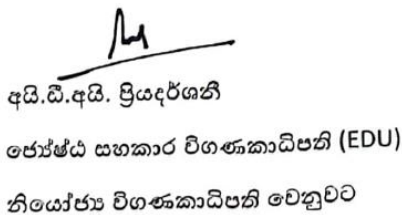 අයි.ඩී.අයි. ප්‍රියදර්ශනී
ජ්‍යේෂ්ඨ සහකාර විගණකාධිපති (EDU)
නියෝජ්‍ය විගණකාධිපති වෙනුවට